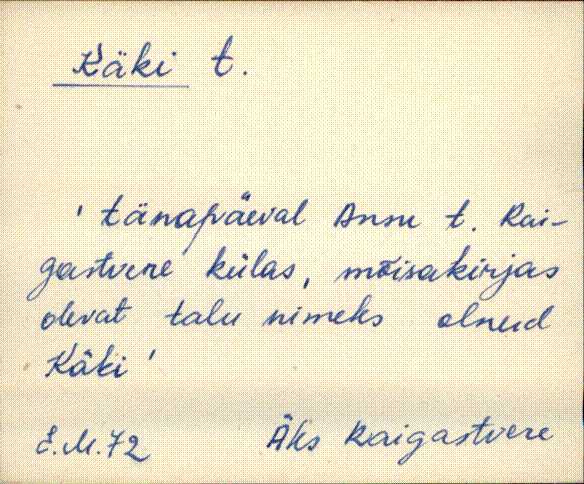 Käki t.
' tänapäeval Ansu t. Rai-
gastvere külas, mõisakirjas
olevat talu nimeks olnud
Käki '
E.M.72 Äks Raigastvere